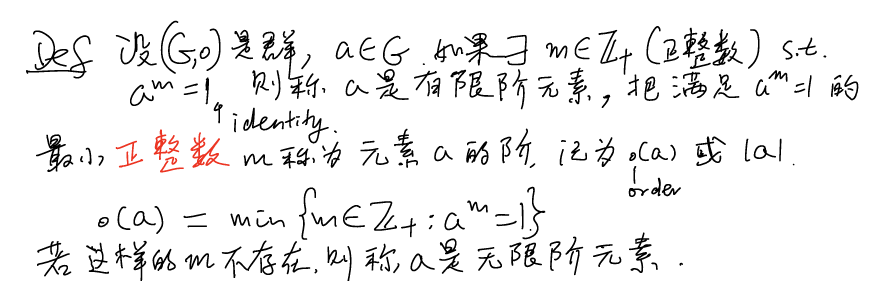 Def 设(G,∘)是群, a∈G. 如果∃ m∈ℤ₊ (正整数) s.t.
aᵐ=1, 则称 a是有限阶元素, 把满足 aᵐ=1 的
identity.
最小正整数 m称为元素a的阶, 记为 o(a) 或 |a|.
order
o(a) = min{m∈ℤ₊: aᵐ=1}
若这样的m不存在, 则称a是无限阶元素.